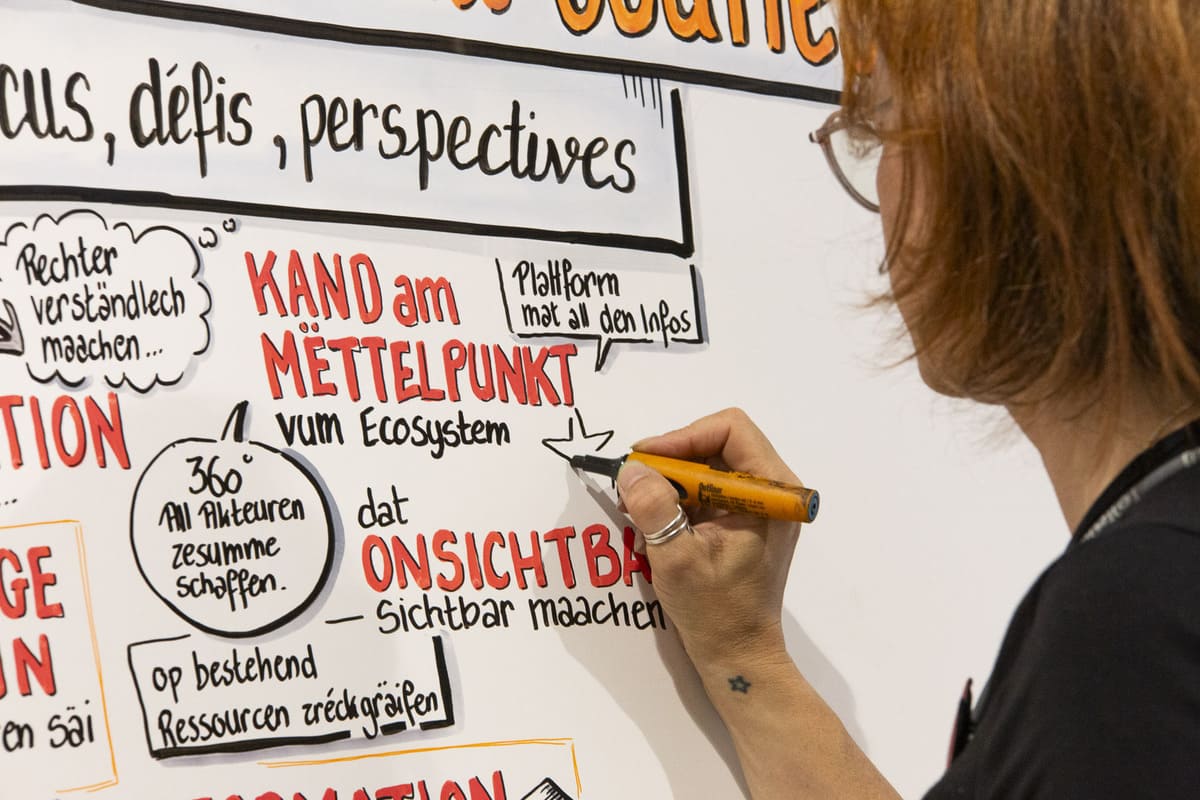 défis, perspectives
Rechter
verständlech
maachen...
KAND am
MËTTELPUNKT
vum Ecosystem
Plattform
mat all den Infos
360°
All Akteuren
zesumme
schaffen.
dat
ONSICHTBA
— Sichtbar maachen
op bestehend
Ressourcen zréckgräifen
säi